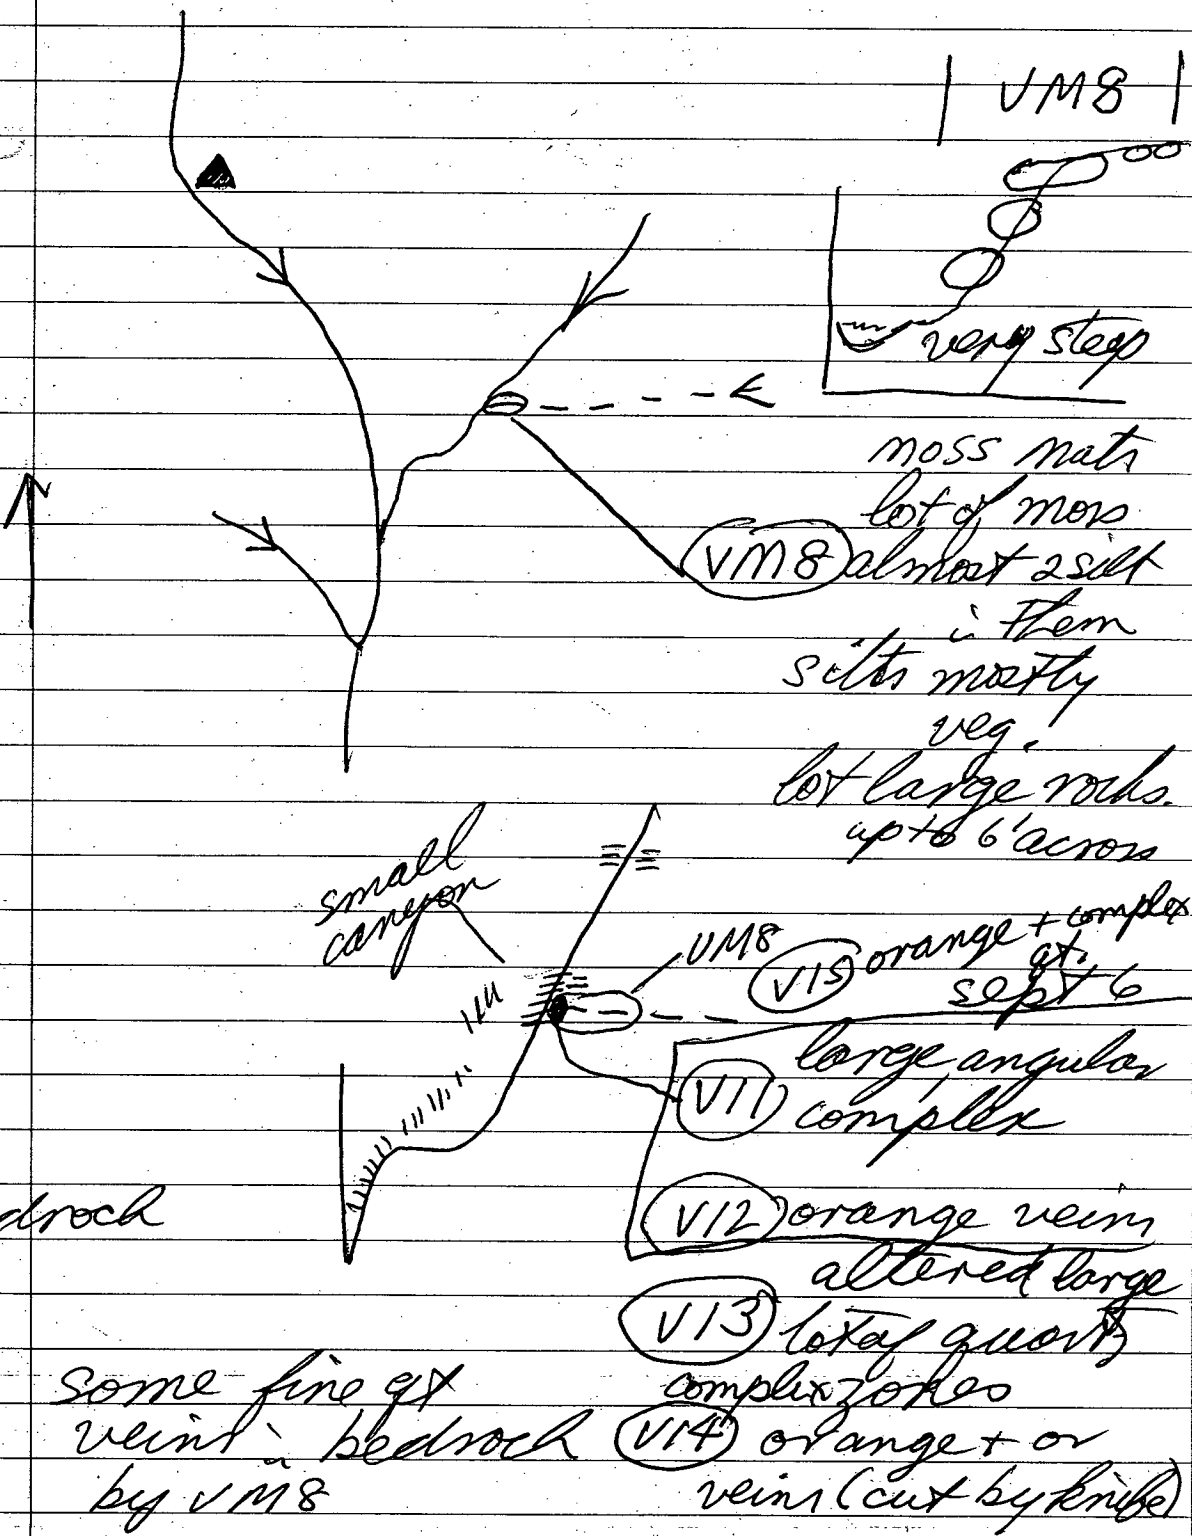 VM8
very steep
moss mats
lot of moss
VM8 almost 2 silt
in them
silts mostly
veg.
lot large rocks.
up to 6' across
small
canyon
VM8
V15 orange + complex
qt.
sept 6
large angular
V11 complex
drock
V12 orange veins
altered large
V13 lot of quartz
complex zones
V14 orange + or
veins (cut by knife)
some fine qt
veins in bedrock
by VM8